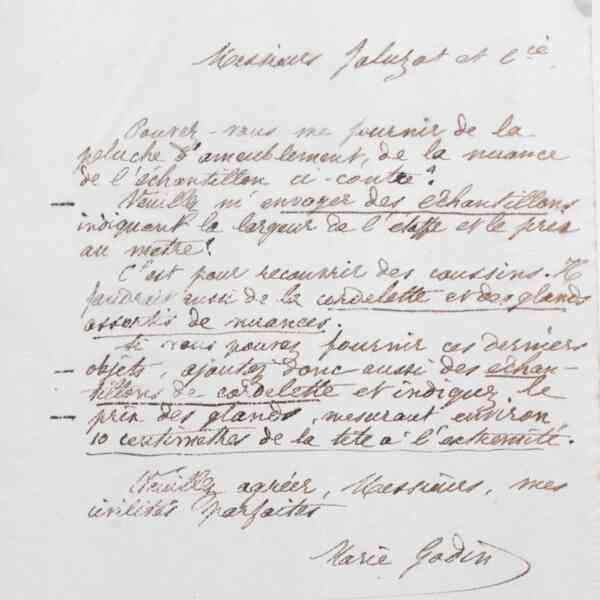 Messieurs Jaluzot et Cie
Pouvez-vous me fournir de la
peluche d'ameublement, de la nuance
de l'échantillon ci-contre?
Veuillez m'envoyer des échantillons
indiquant la largeur de l'étoffe et le prix
au mètre?
C'est pour recouvrir des coussins. Il
faudrait aussi de la cordelette et des glands
assortis de nuances.
Si vous pouvez fournir ces derniers
objets, ajoutez donc aussi des échan-
tillons de cordelette et indiquez le
prix des glands, mesurant environ
10 centimètres de la tête à l'extrémité.
Veuillez agréer, Messieurs, mes
civilités parfaites
Marie Godin